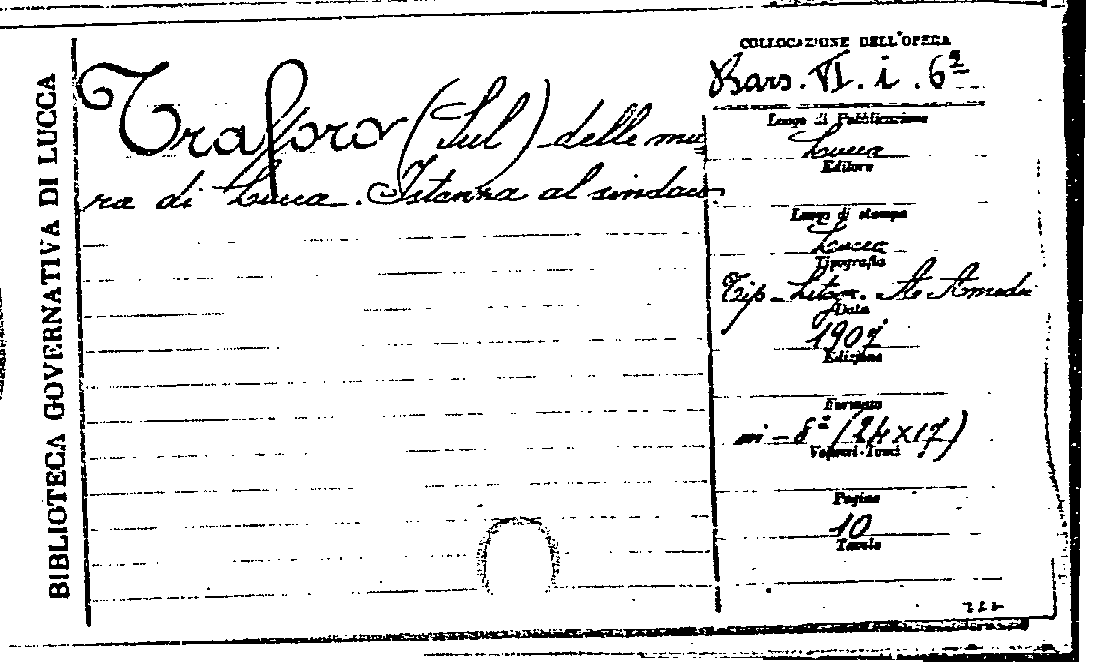 BIBLIOTECA GOVERNATIVA DI LUCCA
Traforo (Sul) delle mu=
ra di Lucca. Istanza al sindaco.
COLLOCAZIONE DELL'OPERA
Bars. VI. i. 6²
Luogo di Pubblicazione
Lucca
Editore
Luogo di stampa
Lucca
Tipografia
Tip. Amedei
Data
1907
Edizione
Formato
in-8° (24x17)
Volumi-Tomi
Pagine
10
Tavole
222